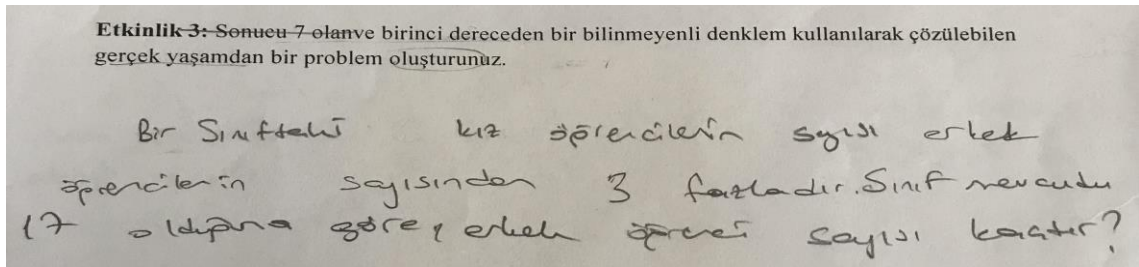 Etkinlik 3: Sonucu 7 olanve birinci dereceden bir bilinmeyenli denklem kullanılarak çözülebilen
gerçek yaşamdan bir problem oluşturunuz.
Bir Sınıftaki kız öğrencilerin sayısı erkek
öğrencilerin sayısından 3 fazladır. Sınıf mevcudu
17 olduğuna göre, erkek öğrenci sayısı kaçtır?